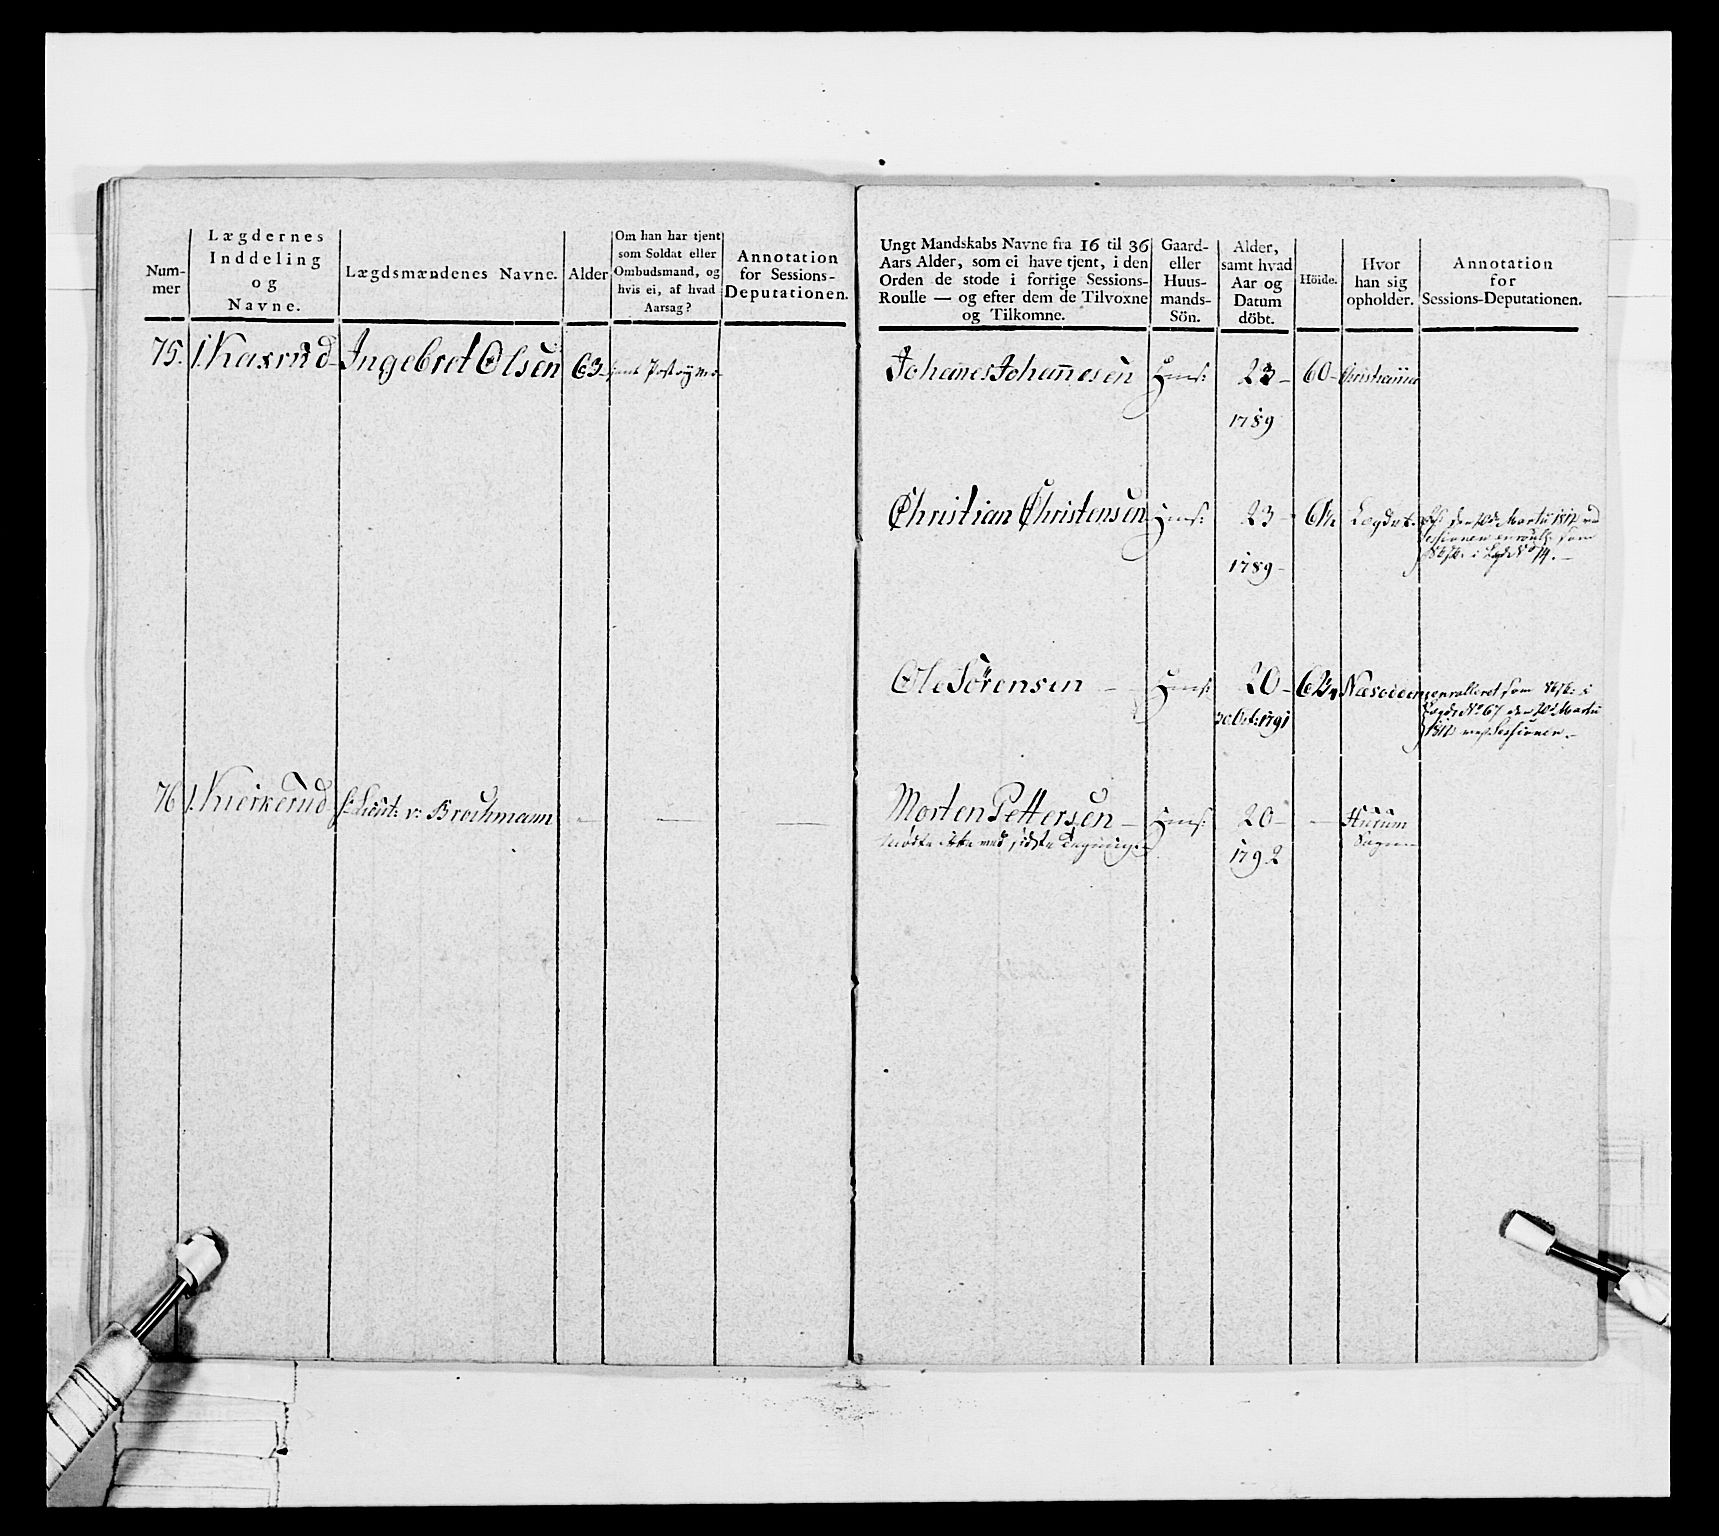 Num-
mer
Lægdernes
Inddeling
og
Navne.
Lægdsmændenes Navne.
Alder
Om han har tjent
som Soldat eller
Ombudsmand, og
hvis ei, af hvad
Aarsag?
Annotation
for Sessions-
Deputationen.
75. 1. Kaxrud Ingebret Olsen 63
76 1. Kierkerud v: Brochmann
Ungt Mandskabs Navne fra 16 til 36
Aars Alder, som ei have tjent, i den
Orden de stode i forrige Sessions-
Roulle — og efter dem de Tilvoxne
og Tilkomne.
Gaard-
eller
Huus-
mands-
Sön.
Alder,
samt hvad
Aar og
Datum
döbt.
Höide.
Hvor
han sig
opholder.
Annotation
for
Sessions-Deputationen.
Johannes Johannesen Huus: 23 - 60 - Christiania
1789
Christian Christensen Huus: 23 - Lægdet.
1789 -
Ole Sörensen - Huus: 20 - Næsodden enrolleret som
30. Oct: 1791 Lægd No 67 den
1812 ved Sessionen.
Morten Pettersen - Huus: 20 - Hurum
Mödte ikke ved sidste Tegning. Sogn
1792